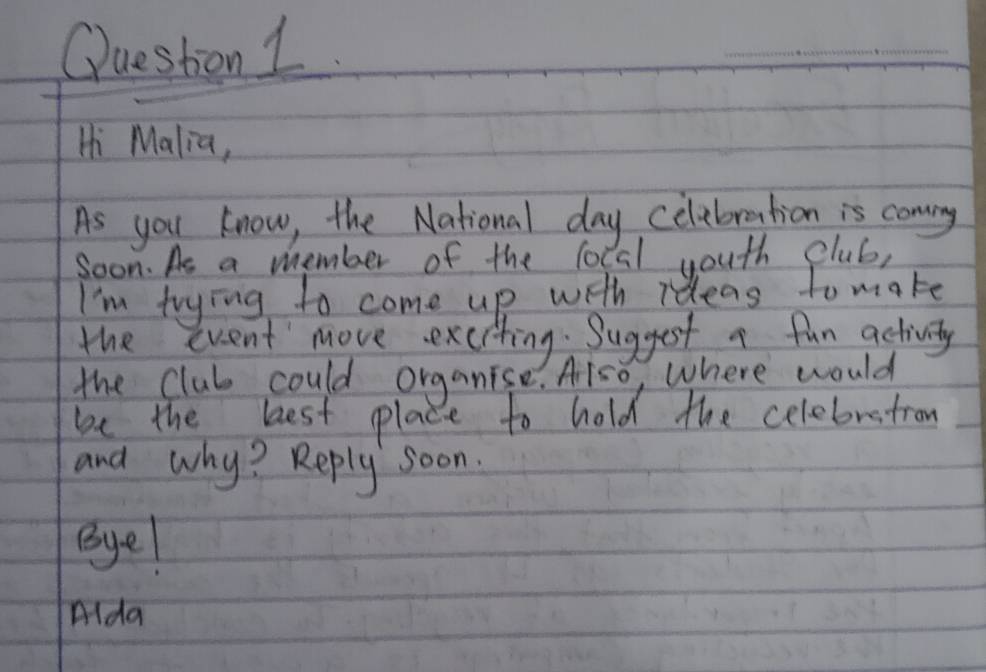 Question 1.
Hi Malia,
As you know, the National day celebration is coming
soon. As a member of the local youth club,
I'm trying to come up with ideas to make
the event move exciting. Suggest a fun activity
the club could organise. Also, where would
be the best place to hold the celebration
and why? Reply soon.
Bye!
Alda